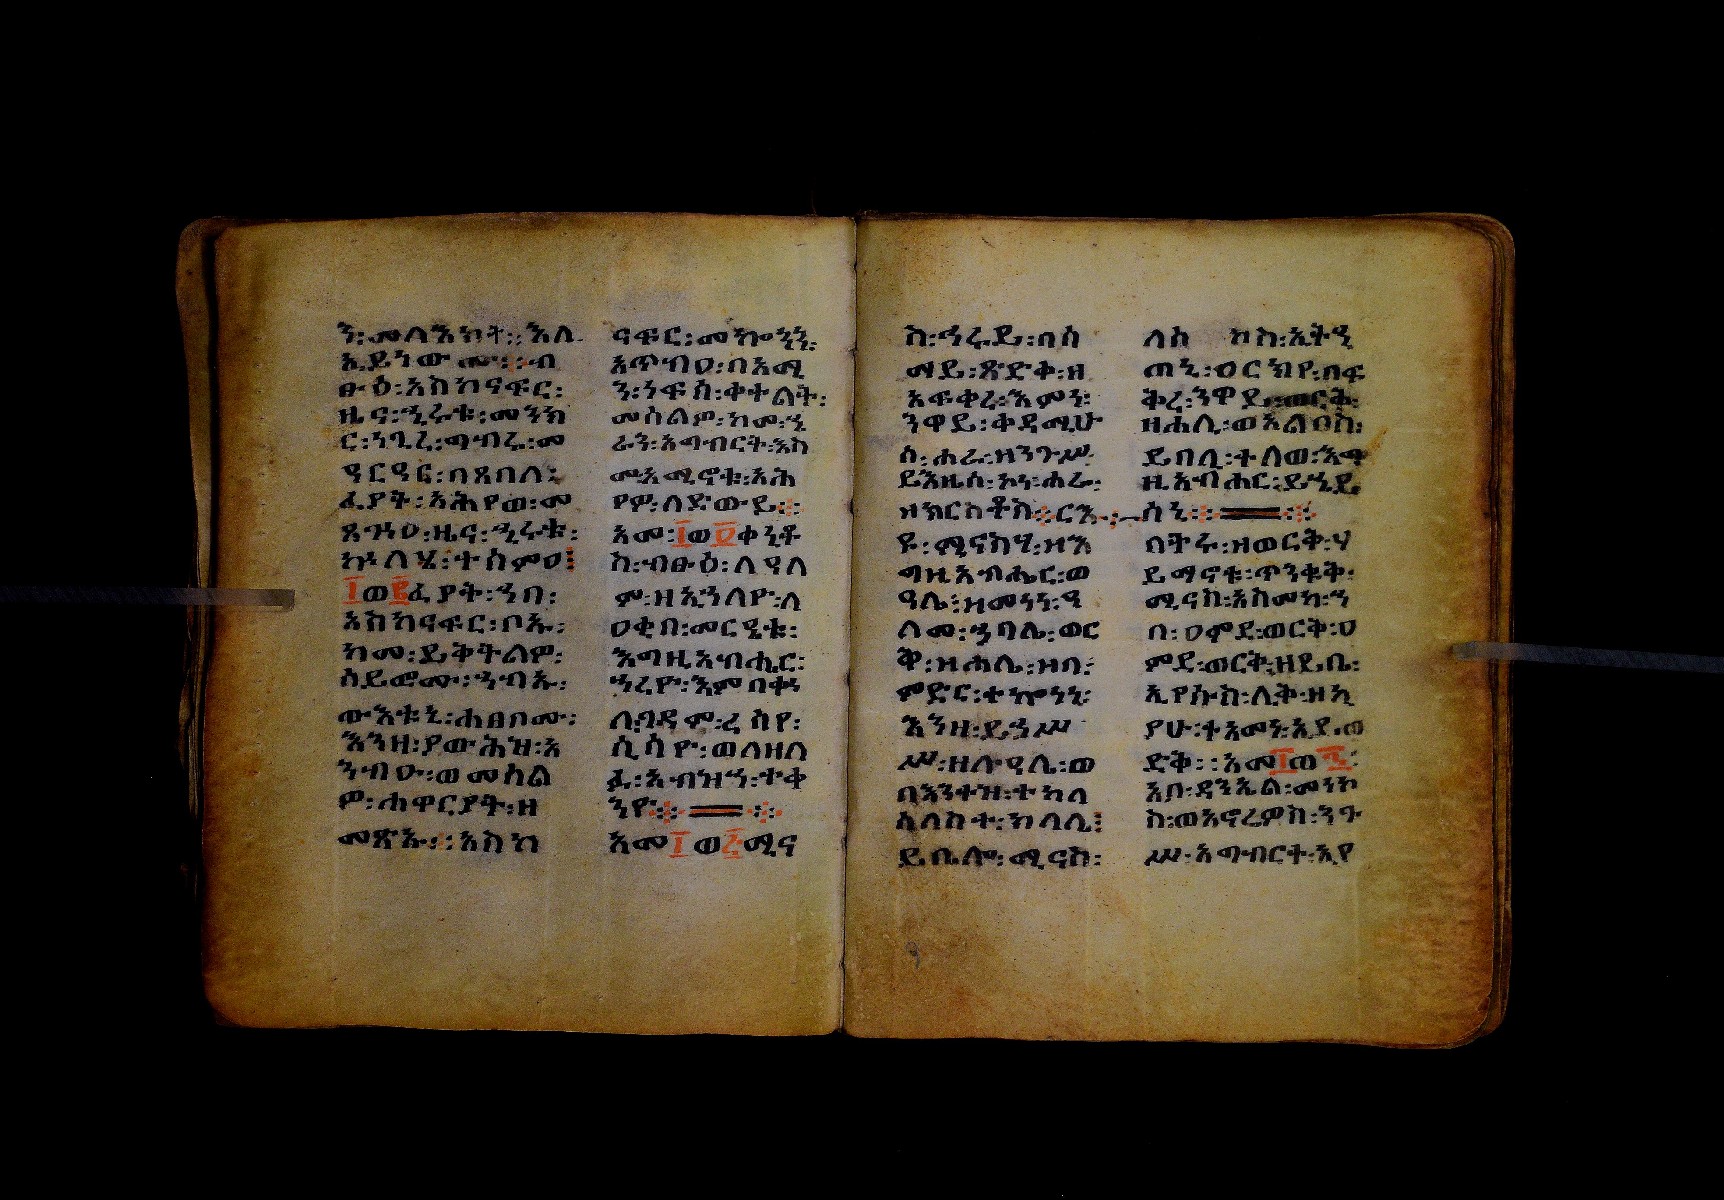 ን፡መላእክት፡፡እለ
ኢይነውሙ፡፡ብ
ፁዕ፡አስከናፍር፡
ዜና፡ኂሩቱ፡መንክ
ር፡ነጊረ፡ግብሩ፡መ
ዳርዳር፡በጸበለ፡
ፈያት፡አሕየወ፡መ
ጸጉዐ፡ዜና፡ኂሩቱ፡
ኵለሄ፡ተሰምዐ፡
፲ወ፪ፈያት፡ኀበ፡
አስከናፍር፡ቦኡ፡
ከመ፡ይቅትልዎ፡
ሰይፎሙ፡ኀብኡ፡
ውእቱኒ፡ሐፀቦሙ፡
እንዘ፡ያውሕዝ፡አ
ንብዑ፡ወመሰል
ዎ፡ሐዋርያት፡ዘ
መጽኡ፡፡አስከ
ናፍር፡መኰንን፡
አጥብዐ፡በአሚ
ን፡ነፍሰ፡ቀተልት፡
መሰልዎ፡ከመ፡ኄ
ራን፡አግብርት፡እስ
መ፡አሚኖቱ፡አሕ
የዎ፡ለድውይ፡፡
አመ፡፲ወ፬ቀኒቆ
ስ፡ብፁዕ፡ለዳለ
ም፡ዘኢኀለዮ፡ለ
ዐቂበ፡መርዔቱ፡
እግዚአብሔር፡
ኀረዮ፡እምበቀነ
ለ፡ባዳም፡ረሰየ፡
ሲሳዮ፡ወለዘለ
ፌ፡አብዝኀ፡ተቀ
ንዮ፡
አመ፲ወ፭ሚና
ስ፡ኀሩይ፡በሰ
ማይ፡ጽድቅ፡ዘ
አፍቀረ፡እምን፡
ንዋይ፡ቀዳሚሁ
ሰ፡ሐራ፡ዘንጉሥ
ይእዜሰ፡ኮነ፡ሐራ፡
ዘክርስቶስ፡
ዩ፡ሚናስሃ፡ዘእ
ግዚአብሔር፡ወ
ዓሌ፡ዘመነነ፡ዓ
ለመ፡ኃባሌ፡ወር
ቅ፡ዘሐሌ፡ዘበ፡
ምድር፡ተኰነነ፡
እንዘ፡ይኀሥ
ሥ፡ዘሉዓሌ፡ወ
በእንተዝ፡ተከለ
ለ
ይቤሎ፡ሚናስ፡
ለስ ከስ፡ኢትኄ
ጠኒ፡ዐርክየ፡በፍ
ቅረ፡ንዋይ፡ወርቅ፡
ዘሐሊ፡ወእልዐስ፡
ይበሊ፡ተለወ፡እግ
ዚአብሔር፡ይኄይ
ሰኒ፡
በትሩ፡ዘወርቅ፡ሃ
ይማኖቱ፡ጥንቁቅ፡
ሚናስ፡አስመከ፡ኀ
በ፡ዐምደ፡ወርቅ፡ዐ
ምደ፡ወርቅ፡ዘይቤ፡
ኢየሱስ፡ሊቅ፡ዘኢ
ያሁ፡ተአመነ፡ኢይወ
ድቅ፡፡አመ፲ወ
አቡ፡ዳንኤል፡መንኮ
ስ፡ወአኖሬዎስ፡ንጉ
ሥ፡አግብርት፡እየ